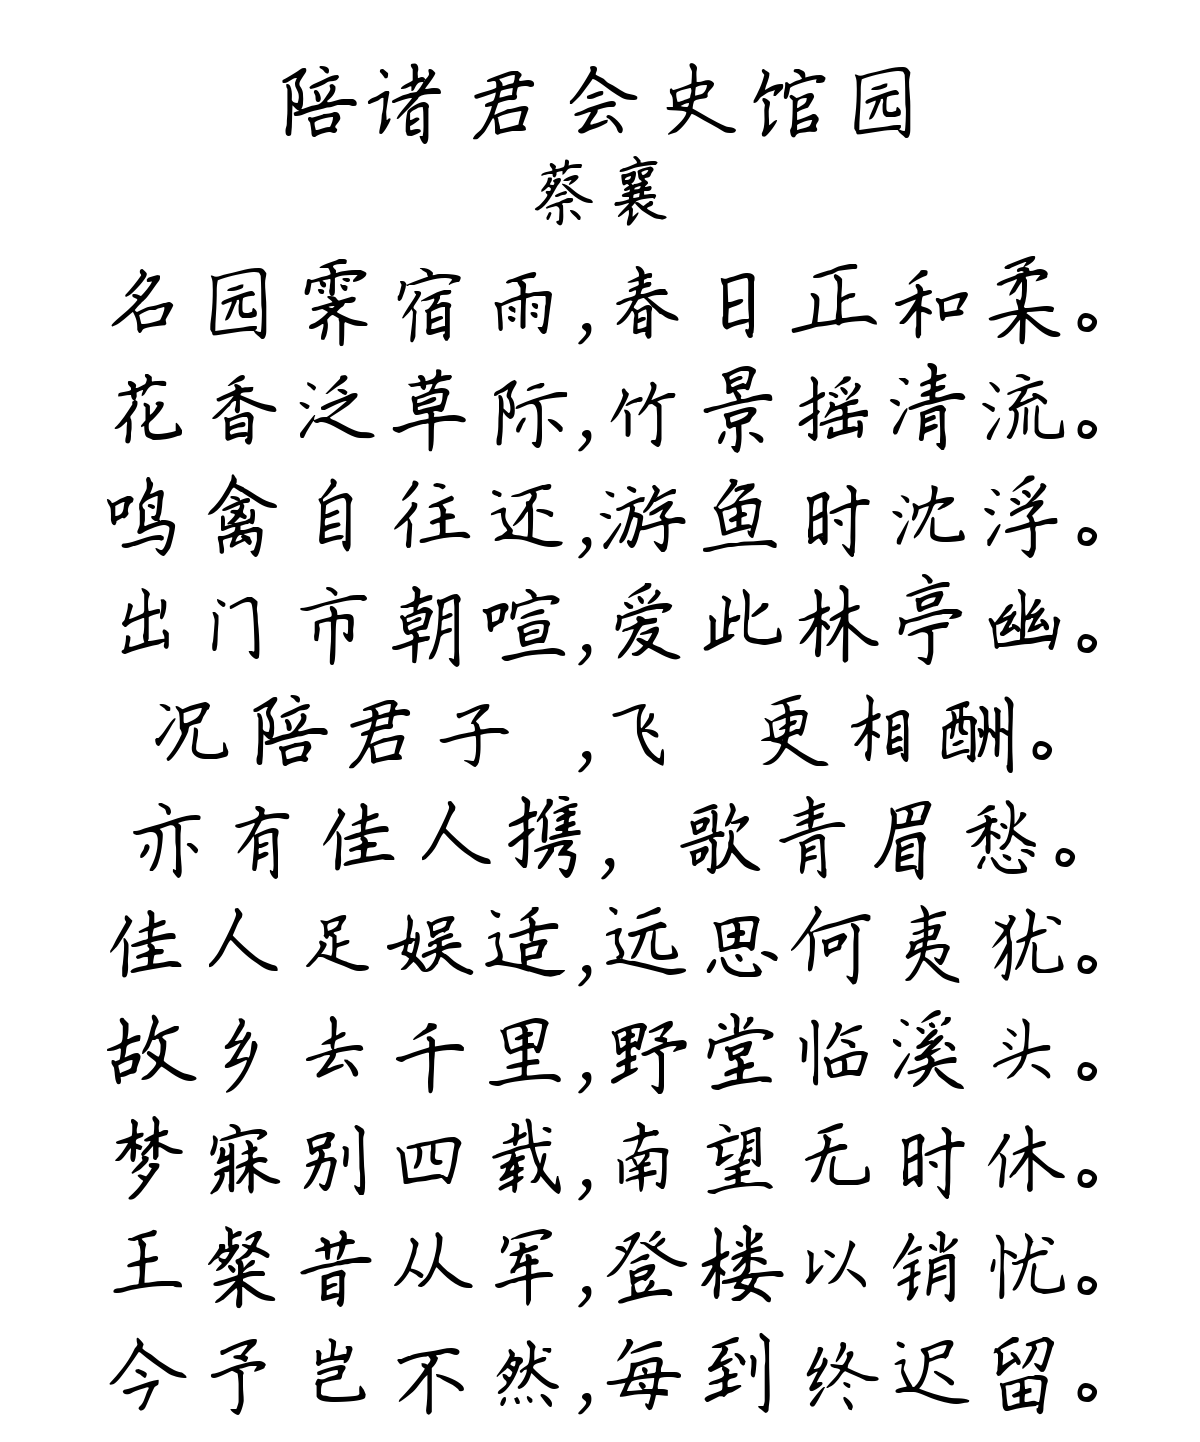 陪诸君会史馆园
蔡襄
名园霁宿雨,春日正和柔。
花香泛草际,竹景摇清流。
鸣禽自往还,游鱼时沈浮。
出门市朝喧,爱此林亭幽。
况陪君子 ,飞 更相酬。
亦有佳人携,歌青眉愁。
佳人足娱适,远思何夷犹。
故乡去千里,野堂临溪头。
梦寐别四载,南望无时休。
王粲昔从军,登楼以销忧。
今予岂不然,每到终迟留。